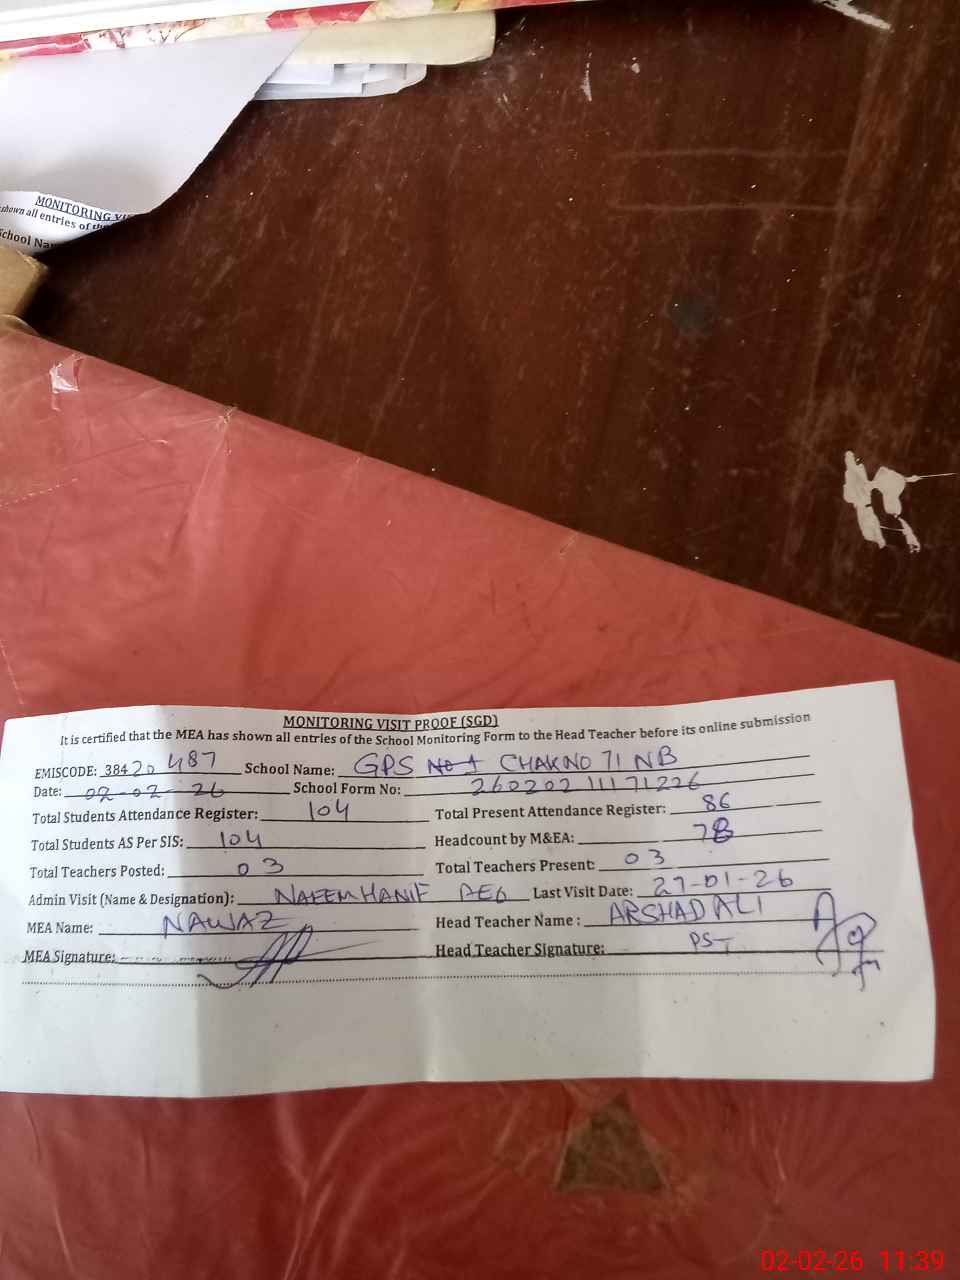 MONITORING VI
shown all entries of the
School Na
MONITORING VISIT PROOF (SGD)
It is certified that the MEA has shown all entries of the School Monitoring Form to the Head Teacher before its online submission
EMISCODE: 38420487 School Name: GPS No 1 CHAK NO 71 NB
Date: 02-02-26 School Form No: 26020211171226
Total Students Attendance Register: 104 Total Present Attendance Register: 86
Total Students AS Per SIS: 104 Headcount by M&EA: 78
Total Teachers Posted: 03 Total Teachers Present: 03
Admin Visit (Name & Designation): NAEEM HANIF AEO Last Visit Date: 27-01-26
MEA Name: NAWAZ Head Teacher Name : ARSHAD ALI
MEA Signature: Head Teacher Signature: PST
02-02-26 11:39